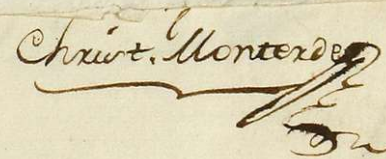 Christ. Monterde